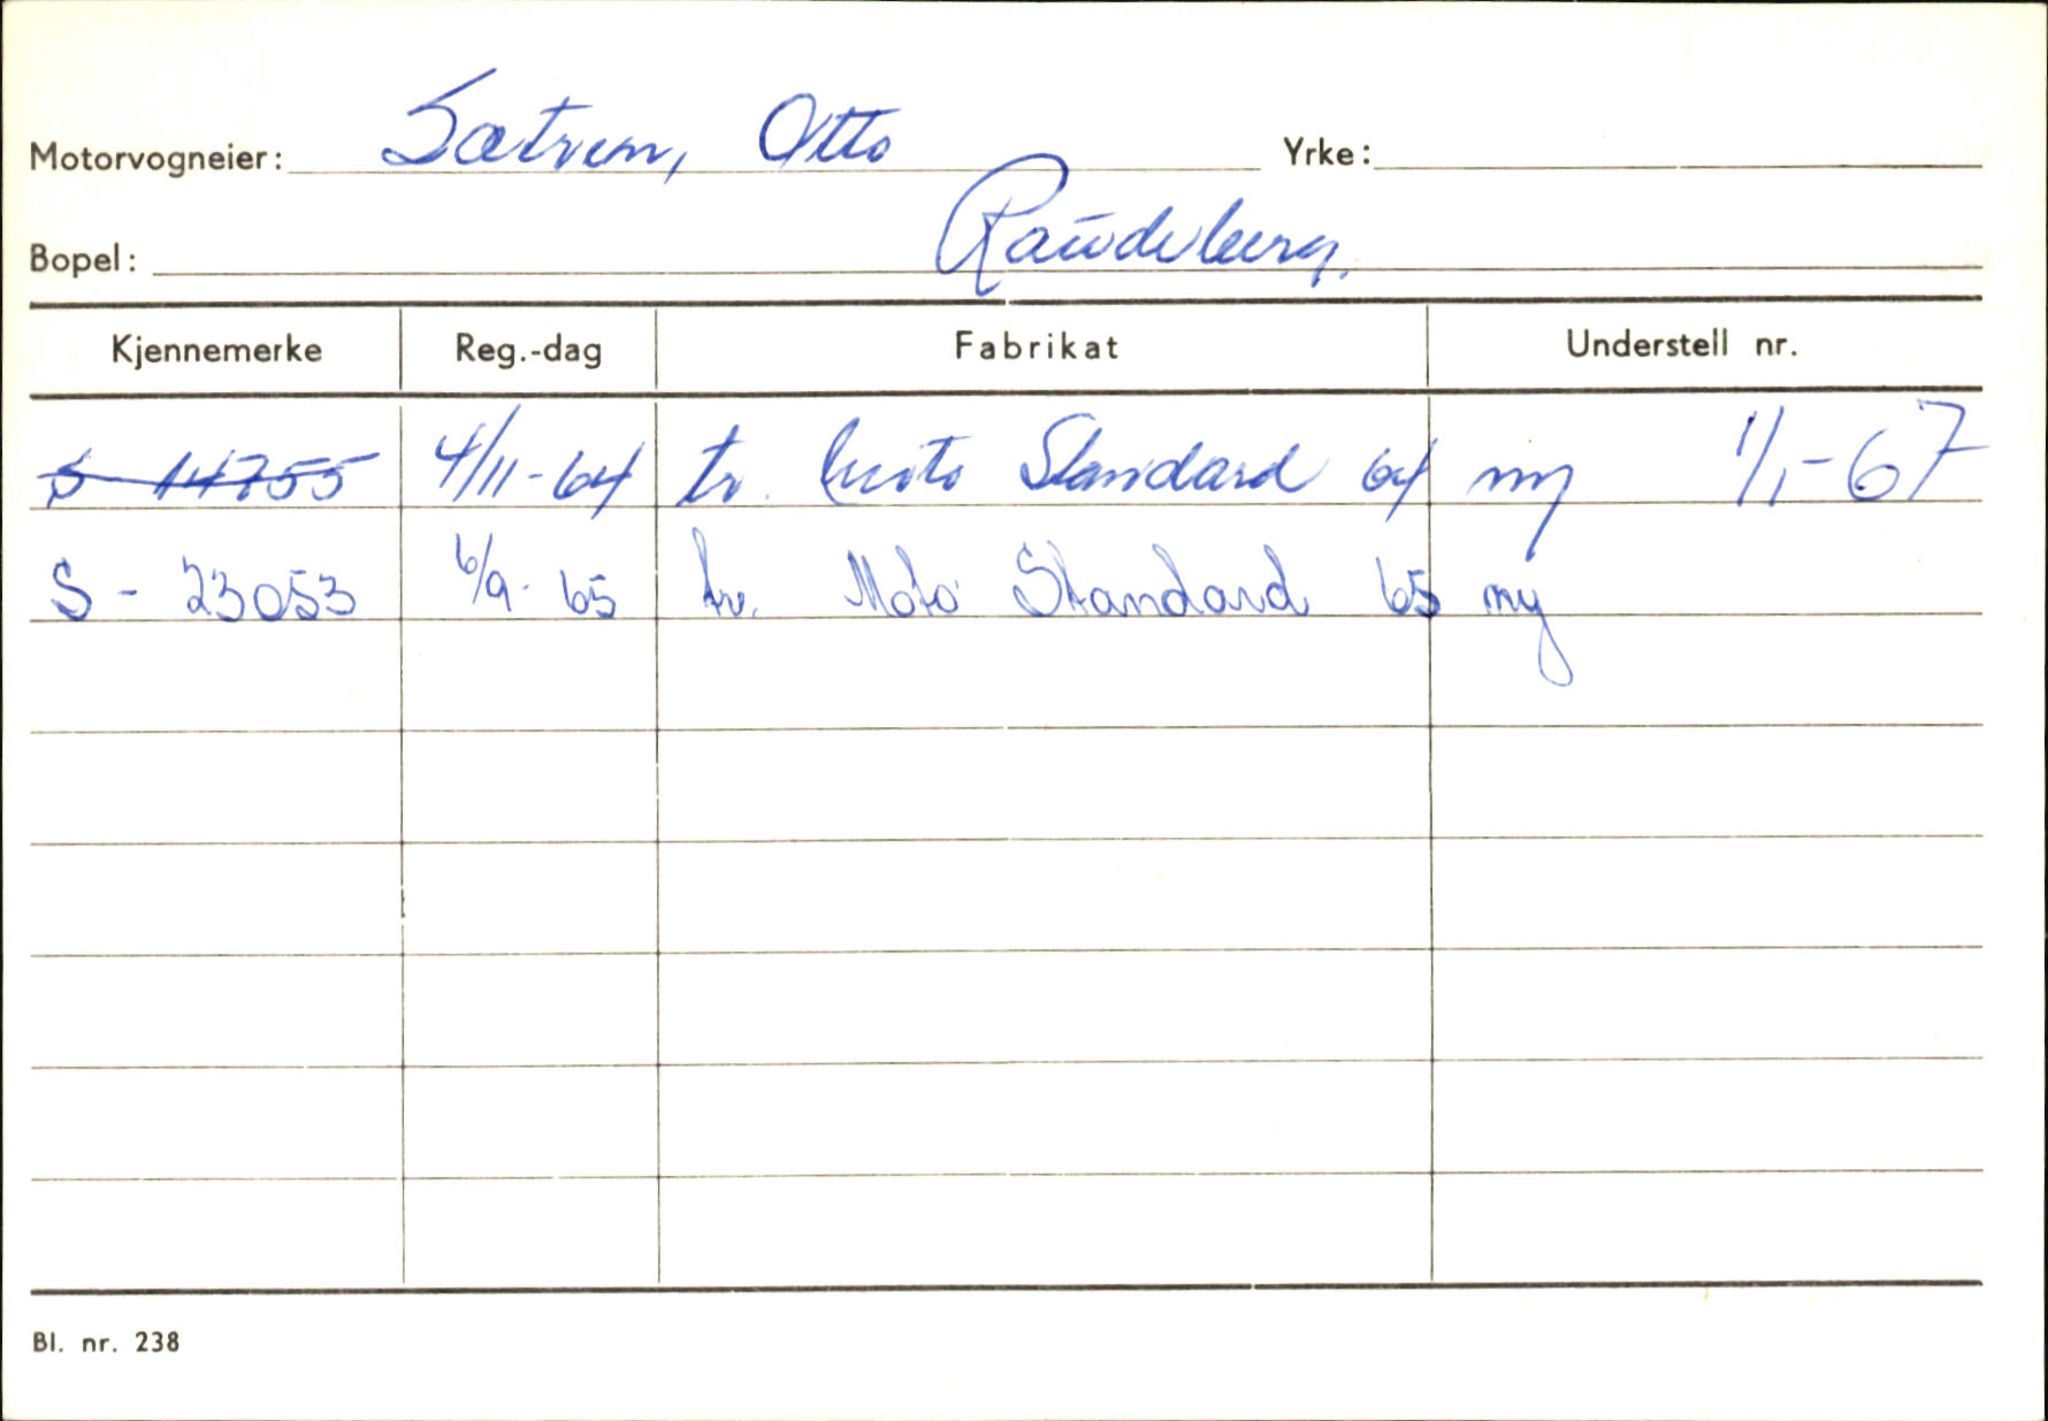 Motorvogneier: Sætren, Otto Yrke:
Bopel: Raudeberg.
Kjennemerke Reg.-dag Fabrikat Understell nr.
S 14755 4/11-64 tr. Moto Standard 64 ny 1/1-67
S - 23053 6/9-65 tr. Moto Standard 65 ny
Bl. nr. 238